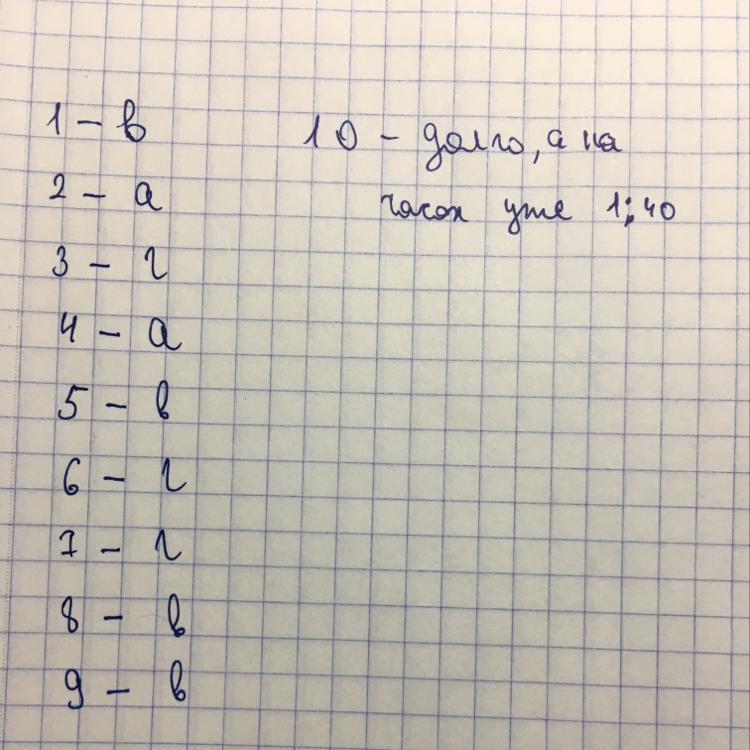 1 - в
2 - а
3 - г
4 - а
5 - в
6 - г
7 - г
8 - в
9 - в
10 - долго, а на
часах уже 1:40